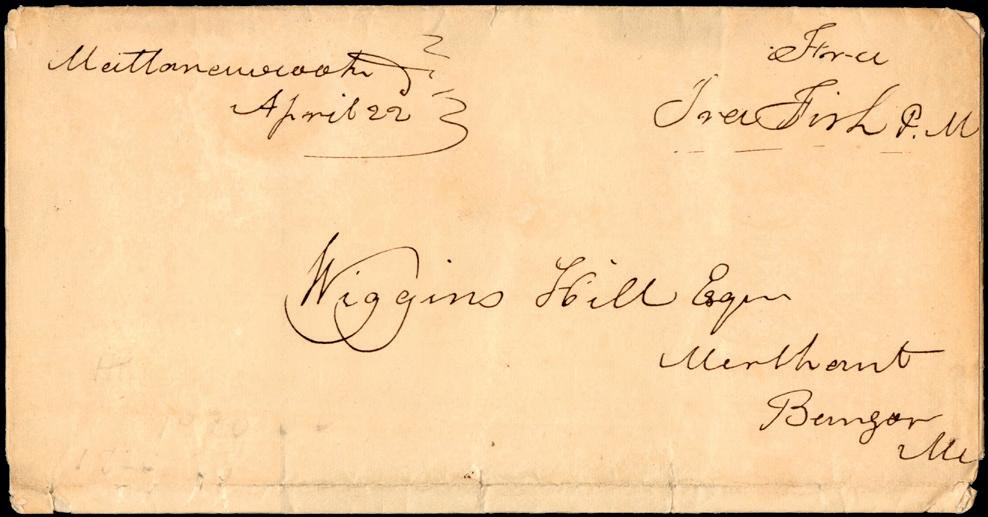 Mattanawcook
April 22
Free
Ira Fish P. M
Wiggins Hill Esqr
Merchant
Bangor
Me